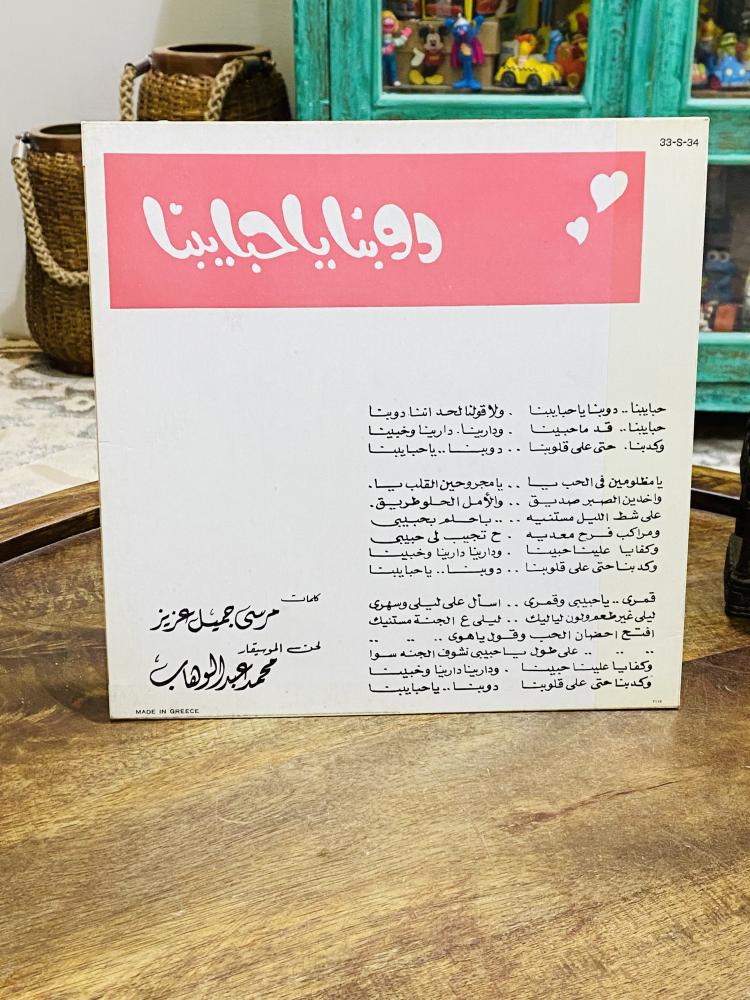 33-S-34
دوبنا يا حبايبنا
حبايبنا.. دوبنا يا حبايبنا . ولا قولنا لحد اننا دوبنا
حبايبنا.. قد ما حبينا . ودارينا. دارينا وخبينا
وكدبنا. حتى على قلوبنا .. دوبنــا.. يا حبايبنا
يا مظلومين فى الحب يــا .. يا مجروحين القلب يــا.
واخدين الصبر صديق .. والأمل الحلو طريق.
على شط الليل مستنيه .. .. باحلم بحبيبى
ومراكب فرح معديه . ح تجيب لى حبيبى
وكفايا علينا حبينا . ودارينا دارينا وخبينا
وكدبنا حتى على قلوبنا .. دوبنــا.. يا حبايبنا
قمرى.. يا حبيبى وقمرى .. اسأل على ليلى وسهرى
ليلى غير طعم ولون لياليك .. ليلى ع الجنة مستنيك
افتح احضان الحب وقول ياهوى .. .. ..
.. .. .. على طول يا حبيبى نشوف الجنه سوا
وكفايا علينا حبينا . ودارينا دارينا وخبينا
وكدبنا حتى على قلوبنا دوبنــا.. يا حبايبنا
كلمات
مرسى جميل عزيز
لحن الموسيقار
محمد عبد الوهاب
MADE IN GREECE